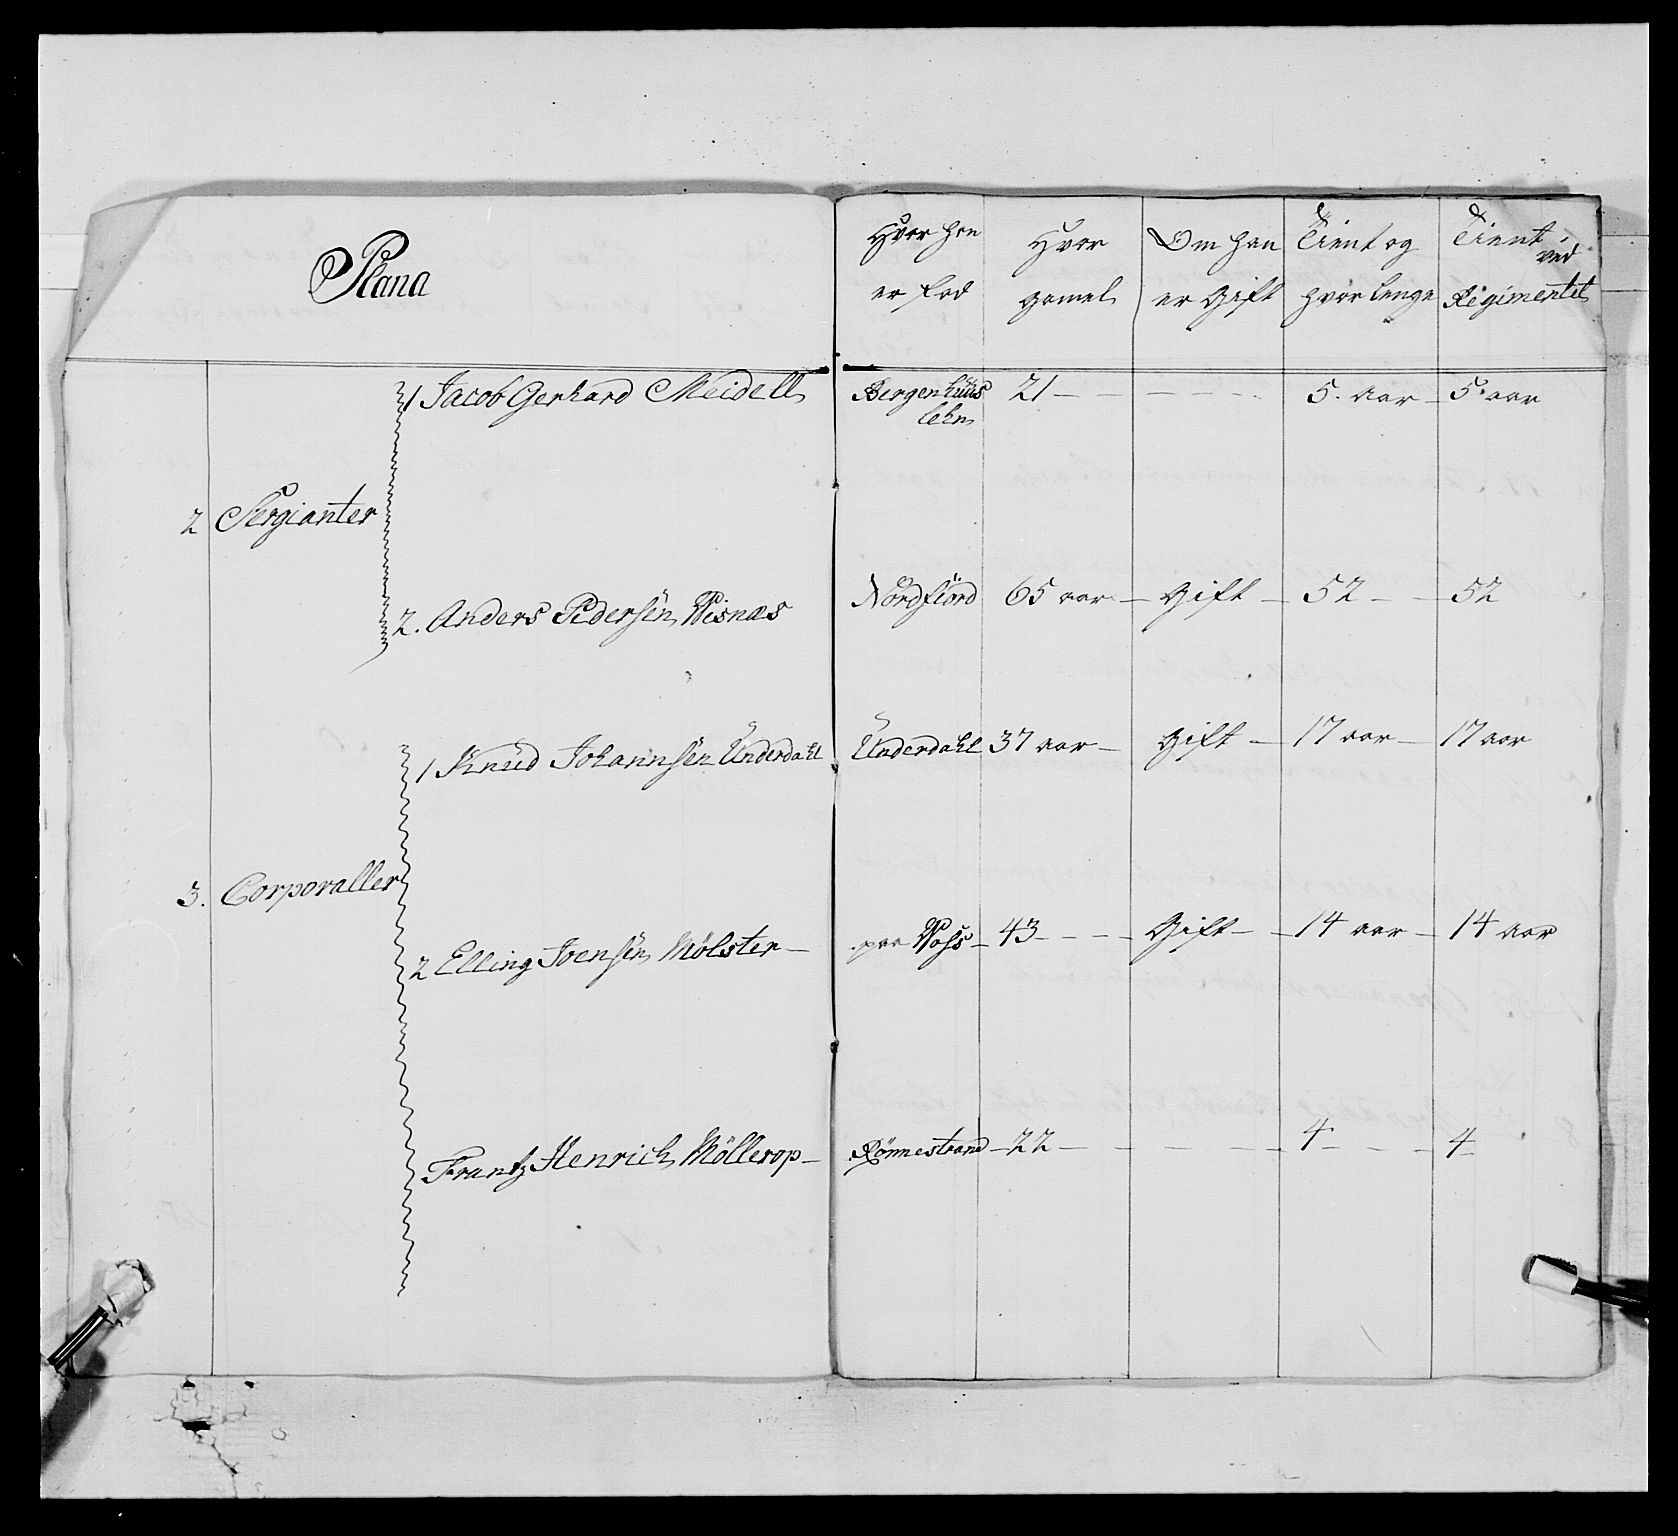 Plana
Hvor han er fød
Hvor gamel
Om han er Gift
Tient og hvor lenge
Tient ved Regimentet
1 Jacob Gerhard Meidell Bergenhuus lehn 21 – – – – – 5. aar – 5. aar
2 Sergianter
2. Anders Pedersen Wisnæs Nordfiord 65 aar – Gift – 52 – – 52
1 Knud Johannsen Underdahl Underdahl 37 aar – Gift – 17 aar – 17 aar
3. Corporaller
2 Elling Joensen Mölster – paa Woss – 43 – – – Gift – – 14 aar – 14 aar
Frantz Henrich Möllerop – Rönnestrand – 22 – – – – – 4 – – – 4